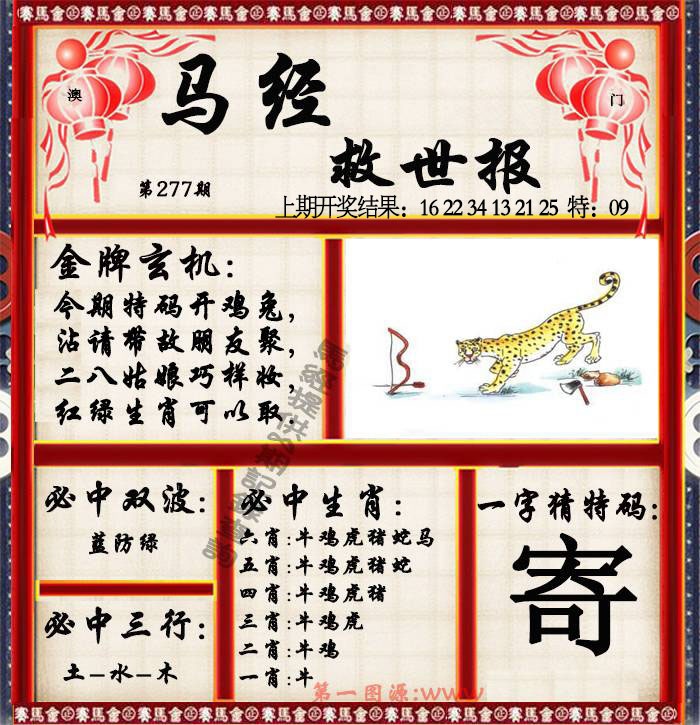 澳
门
马经
救世报
第277期
上期开奖结果：16 22 34 13 21 25 特：09
金牌玄机：
今期特码开鸡兔，
沾请带故朋友聚，
二八姑娘巧样妆，
红绿生肖可以取.
必中双波：
蓝防绿
必中三行：
土–水–木
必中生肖：
六肖：牛鸡虎猪蛇马
五肖：牛鸡虎猪蛇
四肖：牛鸡虎猪
三肖：牛鸡虎
二肖：牛鸡
一肖：牛
一字猜特码：
寄
第一图源：www